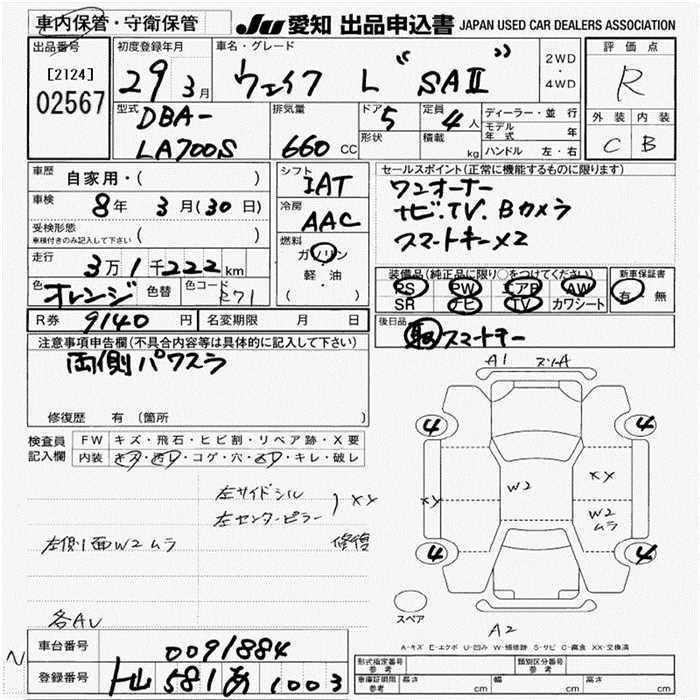 車内保管・守衛保管
JU 愛知 出品申込書 JAPAN USED CAR DEALERS ASSOCIATION
出品番号
[2124]
02567
初度登録年月
29 3月
車名・グレード
ウェイク L "SAⅢ"
2WD
・
4WD
評価点
R
外装 内装
C B
型式
DBA-
LA700S
排気量
660 CC
ドア 5
形状
定員 4人
積載 kg
ディーラー・並行
モデル年式 年
ハンドル 左・右
車歴
自家用・( )
車検
8年 3月(30日)
受検形態
車検付きのみ記入して下さい ( )
走行
3万1千222km
色 オレンジ 色替 色コード R71
シフト
IAT
冷房
AAC
燃料
ガソリン
・
軽・油
( )
セールスポイント(正常に機能するものに限ります)
ワンオーナー
ナビ.TV.Bカメラ
スマートキー×2
装備品(純正品に限り○をつけてください)
PS PW エアB AW
SR ナビ TV カワシート
新車保証書
有・無
R券 9140円 名変期限 月 日
後日品
スマートキー
注意事項申告欄(不具合内容等は具体的に記入して下さい)
両側パワスラ
修復歴 有 (箇所
検査員
記入欄
FW キズ・飛石・ヒビ割・リペア跡・X要
内装 キズ・汚レ・コゲ・穴・キレ・破レ
左サイドシル
左センターピラー
) XX
修復
左側面W2ムラ
各AU
A1
4 4
XX
W2
XX
W2
ムラ
4 4
スペア
A2
A-キズ E-エクボ U-凹み W-補修跡 S-サビ C-腐食 XX-交換済
車台番号 0091884
登録番号 581 あ 1003
N
形式指定番号
参考
類別区分番号
参考
車庫証明期限
参考
長さ cm 幅 cm 高さ cm